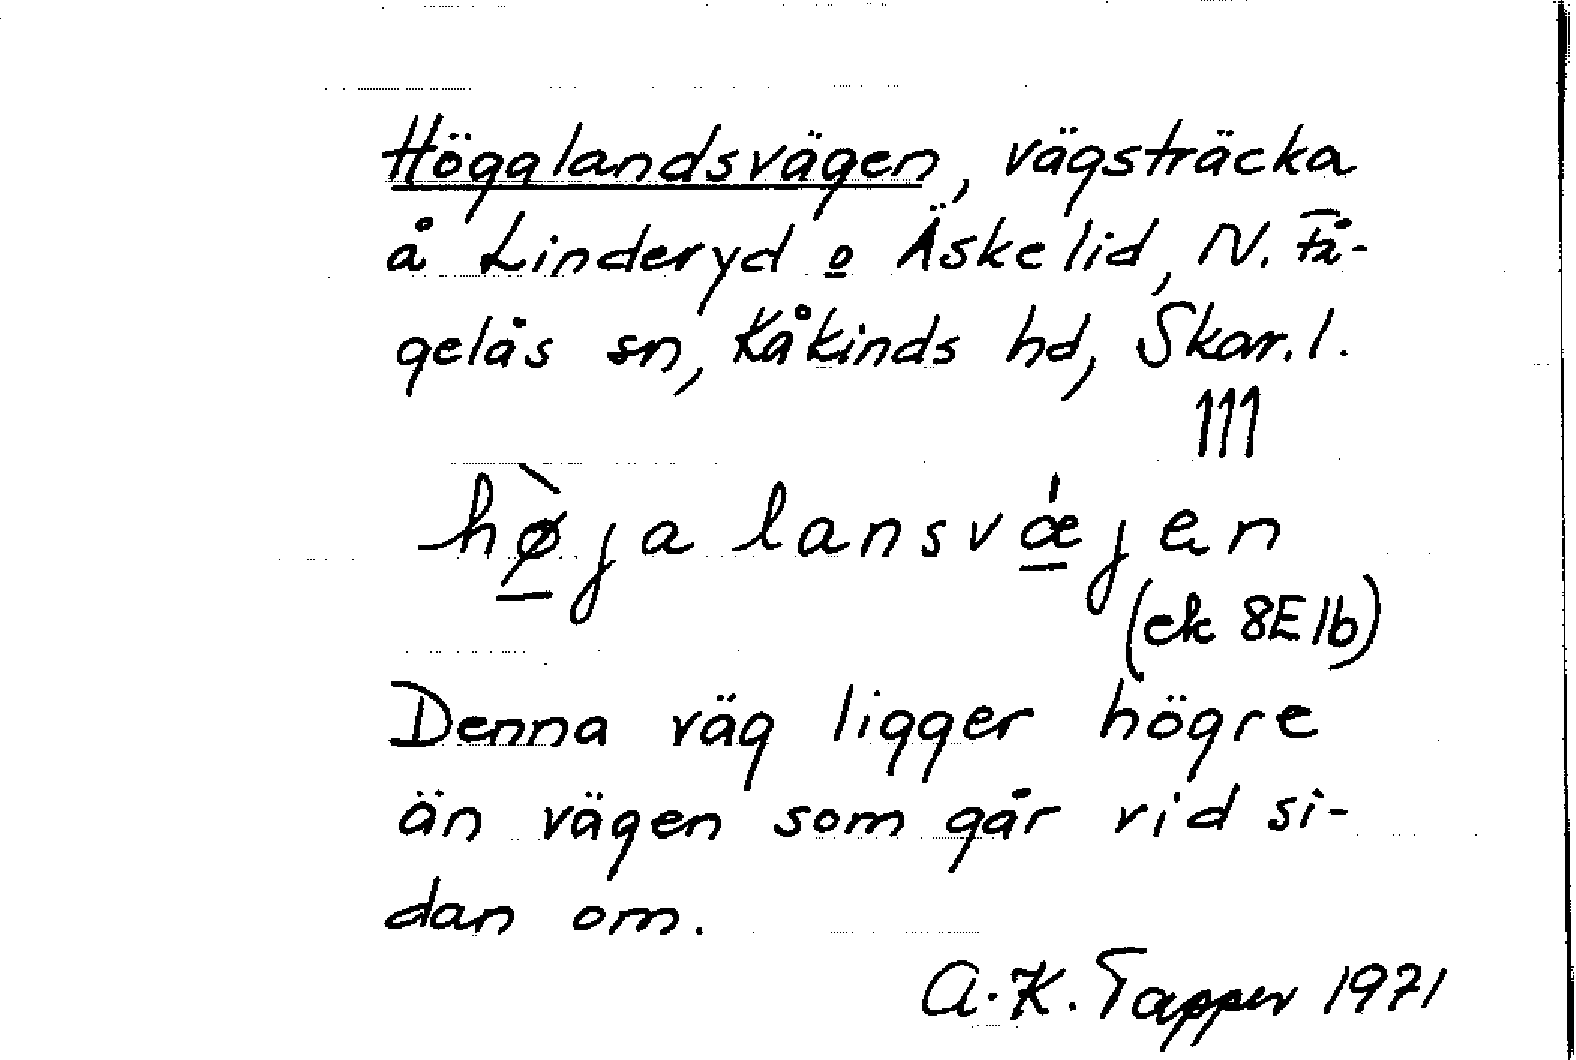 Högalandsvägen, vägsträcka
å Linderyd o Äskelid, N. Få-
gelås sn, Kåkinds hd, Skar. l.
111
hø̀jalansvǽjen
(ek 8E1b)
Denna väg ligger högre
än vägen som går vid si-
dan om.
A.K. Tapper 1971